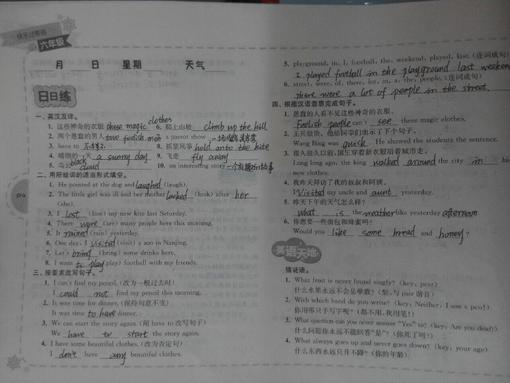 快乐过寒假
六年级
月 日 星期 天气
日日练
一、英汉互译。
1. 这些神奇的衣服 these magic clothes
2. 两个愚蠢的男人 two foolish men
3. have to 不得不
4. 晴朗的一天 a sunny day
5. 黑云 black cloud
6. 爬上山坡 climb up the hill
7. a parrot show
8. 抓紧风筝 hold onto the kite
9. 飞走 fly away
10. an interesting story 一个有趣的故事
二、用所给词的适当形式填空。
1. He pointed at the dog and laughed (laugh).
2. The little girl was ill and her mother looked (look) after her (her).
3. I lost (lose) my new kite last Saturday.
4. There were (are) many people here this morning.
5. It rained (rain) yesterday.
6. One day, I visited (visit) a zoo in Nanjing.
7. Let's bring (bring) some drinks here.
8. I want to play (play) football with my friends.
三、按要求改写句子。
1. I can't find my pencil. (改为一般过去时)
I could not find my pencil this morning.
2. It was time for dinner. (保持句意不变)
It was time to have dinner.
3. We can start the story again. (用 have to 改写句子)
We have to start the story again.
4. I have some beautiful clothes. (改为否定句)
I don't have any beautiful clothes.
5. playground, in, I, football, the, weekend, played, last (连词成句)
I played football in the playground last weekend
6. street, were, of, there, lot, in, a, the, people (连词成句)
there were a lot of people in the street.
四、根据汉语意思完成句子。
1. 愚蠢的人看不见这些神奇的衣服。
Foolish people can't see these magic clothes.
2. 王兵很快,他给同学们出示了下个句子。
Wang Bing was quick. He showed the students the sentence.
3. 很久很久以前,国王穿着新衣服绕着城市走。
Long long ago, the king walked around the city in his new clothes.
4. 我昨天拜访了我的叔叔和阿姨。
I visited my uncle and aunt yesterday.
5. 昨天下午的天气怎么样?
what is the weather like yesterday afternoon
6. 你想要一些面包和蜂蜜吗?
Would you like some bread and honey?
英语天地
猜谜语。
1. What fruit is never found singly? (key: pear)
什么水果永远不会是单数? (梨,与 pair 谐音)
2. With which hand do you write? (key: Neither, I use a pen!)
你用哪只手写字呢? (都不用,我用笔!)
3. What question can you never answer "Yes" to? (key: Are you dead?)
什么问题你永远不能回答"是"? (你死了吗?)
4. What always goes up and never goes down? (key: your age)
什么东西永远只升不降? (你的年龄)